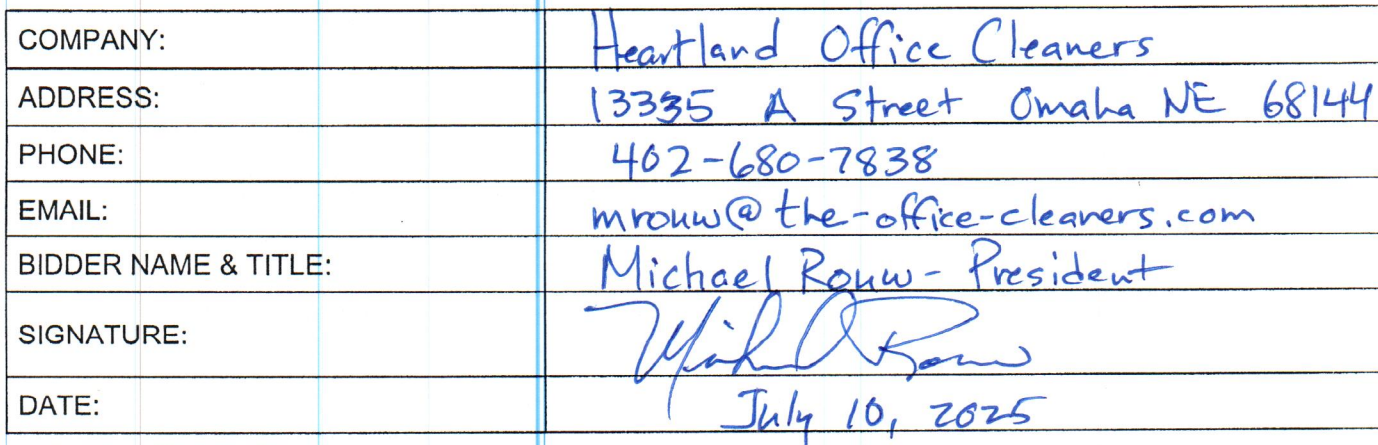 COMPANY: Heartland Office Cleaners
ADDRESS: 13335 A Street Omaha NE 68144
PHONE: 402-680-7838
EMAIL: mrouw@the-office-cleaners.com
BIDDER NAME & TITLE: Michael Rouw - President
SIGNATURE: Michael Rouw
DATE: July 10, 2025